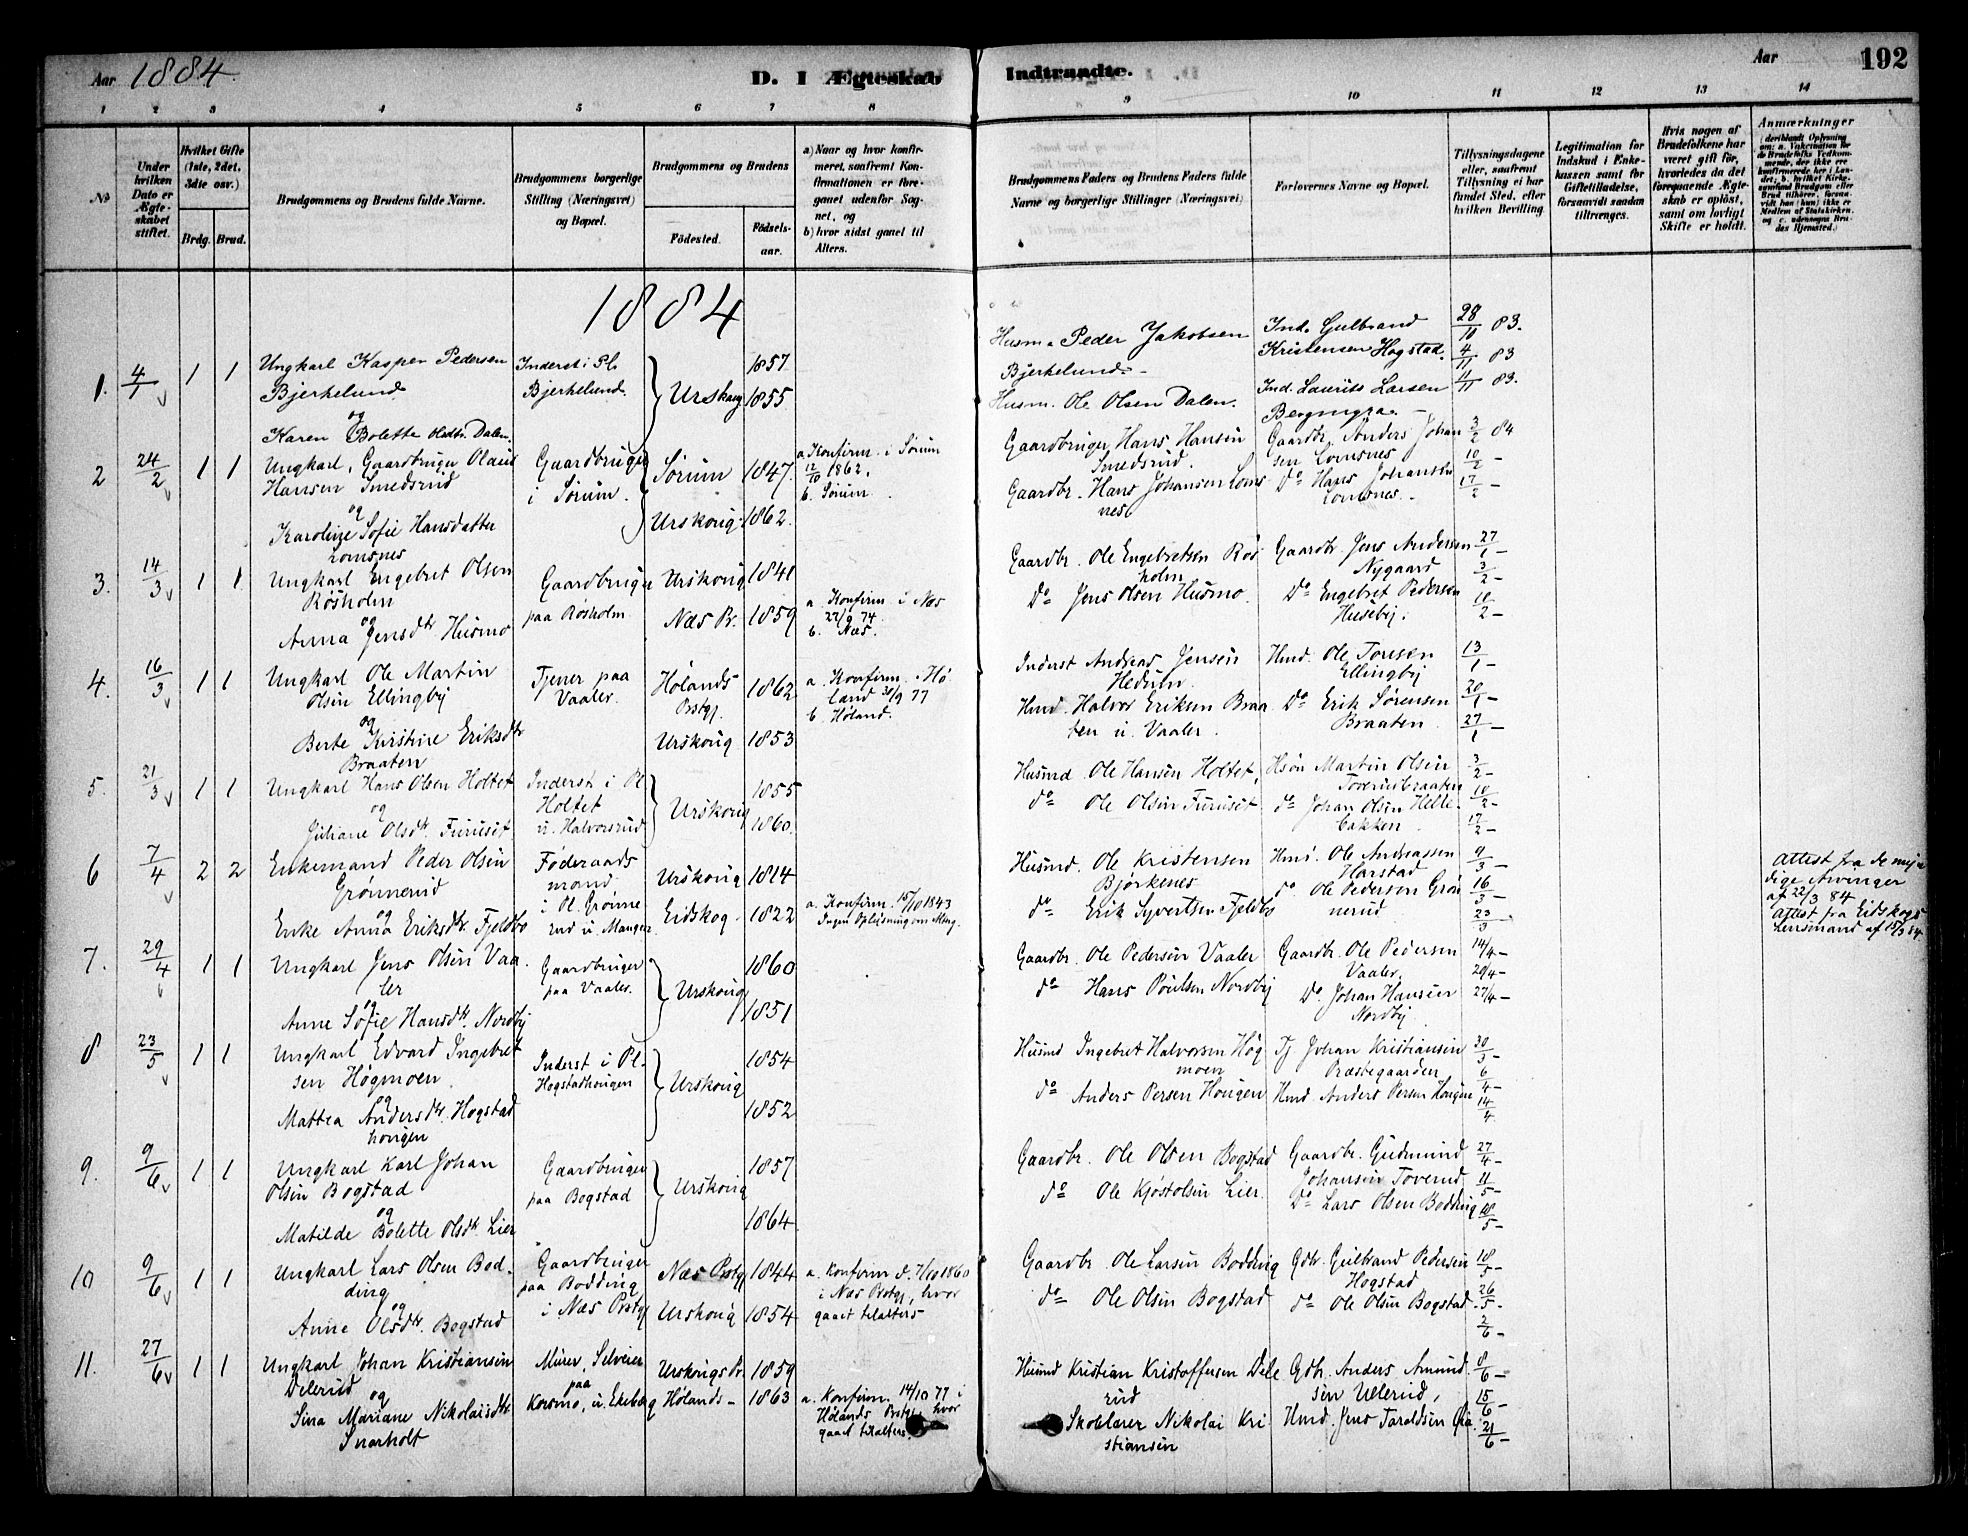 Aar 1884.
D. I Ægteskab
Indtraadte.
Aar
192
1 2 3 4 5 6 7 8
9 10 11 12 13 14
No
Under hvilken Dato er Ægteskabet stiftet.
Hvilket Gifte (1ste, 2det, 3die osv.)
Brdg. Brud.
Brudgommens og Brudens fulde Navne.
Brudgommens borgerlige Stilling (Næringsvei) og Bopæl.
Brudgommens og Brudens
Födested.
Födselsaar.
a) Naar og hvor konfirmeret, saafremt Konfirmationen er foregaaet udenfor Sognet, og
b) hvor sidst gaaet til Alters.
Brudgommens Faders og Brudens Faders fulde Navne og borgerlige Stillinger (Næringsvei)
Forlovernes Navne og Bopæl.
Tillysningsdagene eller, saafremt Tillysning ei har fundet Sted, efter hvilken Bevilling.
Legitimation for Indskud i Enkekassen samt for Giftetilladelse, forsaavidt saadan tiltrænges.
Hvis nogen af Brudefolkene har været gift för, hvorledes da det foregaaende Ægteskab er oplöst, samt om lovligt Skifte er holdt.
Anmærkninger
1884
1. 4/1 1 1
Ungkarl Kasper Pedersen
Bjerkelund
og
Karen Bolette Olsdtr. Dalen.
Inderst i Pl.
Bjerkelund.
Urskoug
1857
1855
Husm. Peder Jakobsen
Bjerkelund
Husm. Ole Olsen Dalen.
Ind. Gulbrand
Kristensen Hogstad.
Ind. Laurits Larsen
28/10 83.
4/11 83
11/11 83.
2 24/2 1 1
Ungkarl, Gaardbruger Olaus
Hansen Smedsrud
og
Karoline Sofie Hansdatter
Lomsnes
Gaardbruger
i Sørum.
Sørum 1847.
Urskoug 1862.
a. Konfirm. i Sørum
12/10 1862.
b. Sørum
Gaardbruger Hans Hansen
Smedsrud.
Gaardbr. Hans Johansen Loms
nes
Gaardbr. Anders Johan
sen Lomsnes
Do Hans Johansen
Lomsnes.
3/2 84
10/2 -
17/2 -
3. 14/3 1 1
Ungkarl Engebret Olsen
Røsholm
og
Anna Jensdtr. Husmo
Gaardbruger
paa Røsholm.
Urskoug 1841
Næs Pr. 1859
a. Konfirm. i Næs
27/9 74.
b. Næs.
Gaardbr. Ole Engebretsen Røs
holm
Do Jens Olsen Husmo.
Gaardbr. Jens Andersen
Nygaard
Do Engebret Pedersen
Huseby.
27/1 -
3/2 -
10/2 -
4. 16/3 1 1
Ungkarl Ole Martin
Olsen Ellingby
og
Berte Kirstine Eriksdtr
Braaten
Tjener paa
Vaaler.
Hølands
Prstgj. 1862
Urskoug 1853
a. Konfirm. i Hø
land 30/9 77
b. Høland.
Inderst Andreas Jensen
Hedum.
Hmd. Halvor Eriksen Braa
ten u. Vaaler.
Hmd. Ole Toresen
Ellingby
Do Erik Sørensen
Braaten.
13/1 -
20/1 -
27/1 -
5. 21/3 1 1
Ungkarl Hans Olsen Holtet
og
Juliane Olsdtr. Furuset
Inderst i Pl.
Holtet
u. Halvorsrud
Urskoug
1855
1860.
Husmd Ole Hansen Holtet,
do Ole Olsen Furuset.
Martin Olsen
Toverudbraaten
do Johan Olsen Helle
bakken
3/2 -
10/2 -
17/2 -
6 7/4 2 2
Enkemand Peder Olsen
Grønnerud
og
Enke Anna Eriksdtr. Fjeldbo
Føderaads
mand
i Pl. Grønne
rud u. Manger
Urskoug 1814
Eidskog. 1822
a. Konfirm. 15/10 1843
Ingen Oplysning om Alterg.
Husmd. Ole Kristensen
Bjørkenes
do Erik Syvertsen Fjeldbo
Hmd. Ole Andreassen
Harstad
do Ole Pedersen Grøn
nerud
9/3 -
16/3 -
23/3 -
Attest fra de myn
dige Arvinger
af 22/3 84
Attest fra Eidskogs
Lensmand af 15/3 84
7. 29/4 1 1
Ungkarl Jens Olsen Vaa
ler
og
Anne Sofie Hansdtr. Nordby
Gaardbruger
paa Vaaler.
Urskoug
1860
1851
Gaardbr. Ole Pedersen Vaaler
do Hans Poulsen Nordby
Gaardbr. Ole Pedersen
Vaaler.
Do. Johan Hansen
Nordby
14/4 -
20/4 -
27/4 -
8 23/5 1 1
Ungkarl Edvard Ingebret
sen Høgmoen.
og
Mattea Andersdtr. Hogstad
hougen
Inderst i Pl.
Hogstadhougen
Urskoug
1854
1852
Husmd Ingebret Halvorsen Høg
moen
do Anders Persen Hougen
Tj. Johan Kristiansen
Præstegaarden
Hmd. Anders Persen Hougen
30/3 -
6/4 -
14/4
9. 9/6 1 1
Ungkarl Karl Johan
Olsen Bogstad
og
Matilde Bolette Olsdtr. Lier
Gaardbruger
paa Bogstad
Urskoug
1857
1864
Gaardbr. Ole Olsen Bogstad
do Ole Kjøstolsen Lier.
Gaardbr. Gudmund
Johansen Toverud.
Do Lars Olsen Bodding
27/4 -
11/5 -
18/5 -
10 9/6 1 1
Ungkarl Lars Olsen Bod-
ding
og
Anne Olsdtr. Bogstad
Gaardbruger
paa Bodding
i Næs Prstgj
Næs Prstgj 1844
Urskoug 1854
a. Konfirm. d. 7/10 1860
i Næs Prstgj, hvor
gaaet tilalters
Gaardbr. Ole Larsen Bodding
do Ole Olsen Bogstad
Gdbr. Gulbrand Pedersen
Hogstad
do Ole Olsen Bogstad.
18/5 -
26/5 -
2/6 -
11. 27/6 1 1
Ungkarl Johan Kristiansen
Delerud
og
Sina Mariane Nikolaisdtr
Snarholt
Murer, Selveier
paa
Korsmo, u. Ekeberg
Urskougs Pr. 1859
Hølands - 1863
a. Konfirm. 14/10 77 i
Hølands Prstgj. hvor
gaaet tilalters.
Husmd Kristian Kristoffersen Dele
rud
Skolelærer Nikolai Kri
stiansen
Gdbr. Anders Amund
sen Ulerud,
Hmd. Jens Taraldsen
8/6 -
15/6 -
21/6 -